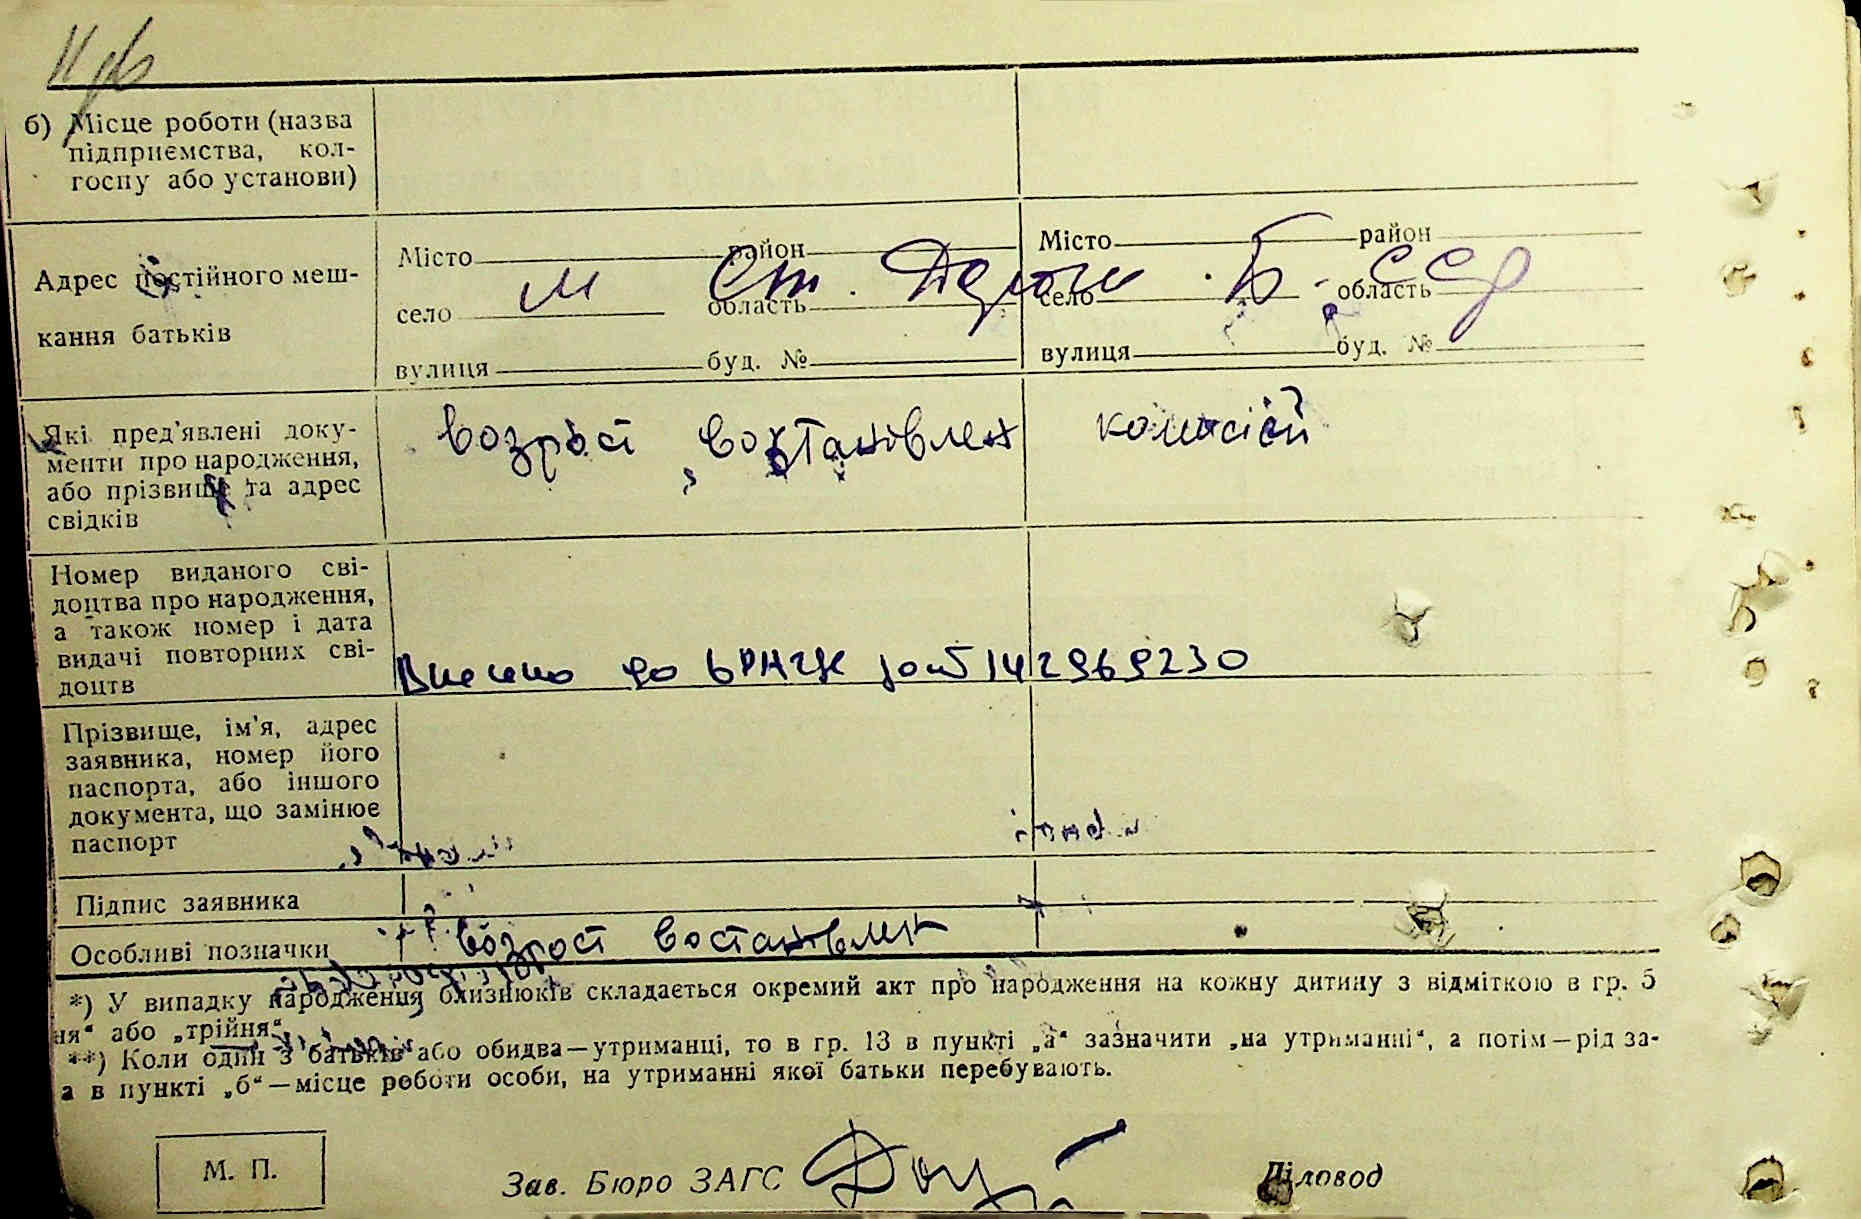 б) Місце роботи (назва
підприємства, кол-
госпу або установи)
Місто район Місто район
Адрес постійного меш-
м Ст. Дороги Б-ССР
село область село область
кання батьків
вулиця буд. № вулиця буд. №
Які пред'явлені доку-
менти про народження,
або прізвище та адрес
свідків
возраст востановлен комисией
Номер виданого сві-
доцтва про народження,
а також номер і дата
видачі повторних сві-
доцтв
Внесено до ДРАЦС 142969230
Прізвище, ім'я, адрес
заявника, номер його
паспорта, або іншого
документа, що замінює
паспорт
Підпис заявника
Особливі позначки возраст востановлен
*) У випадку народження близнюків складається окремий акт про народження на кожну дитину з відміткою в гр. 5
ня“ або „трійня“.
**) Коли один з батьків або обидва—утриманці, то в гр. 13 в пункті „а“ зазначити „на утриманні“, а потім—рід за-
а в пункті „б“—місце роботи особи, на утриманні якої батьки перебувають.
М. П.
Зав. Бюро ЗАГС Діловод